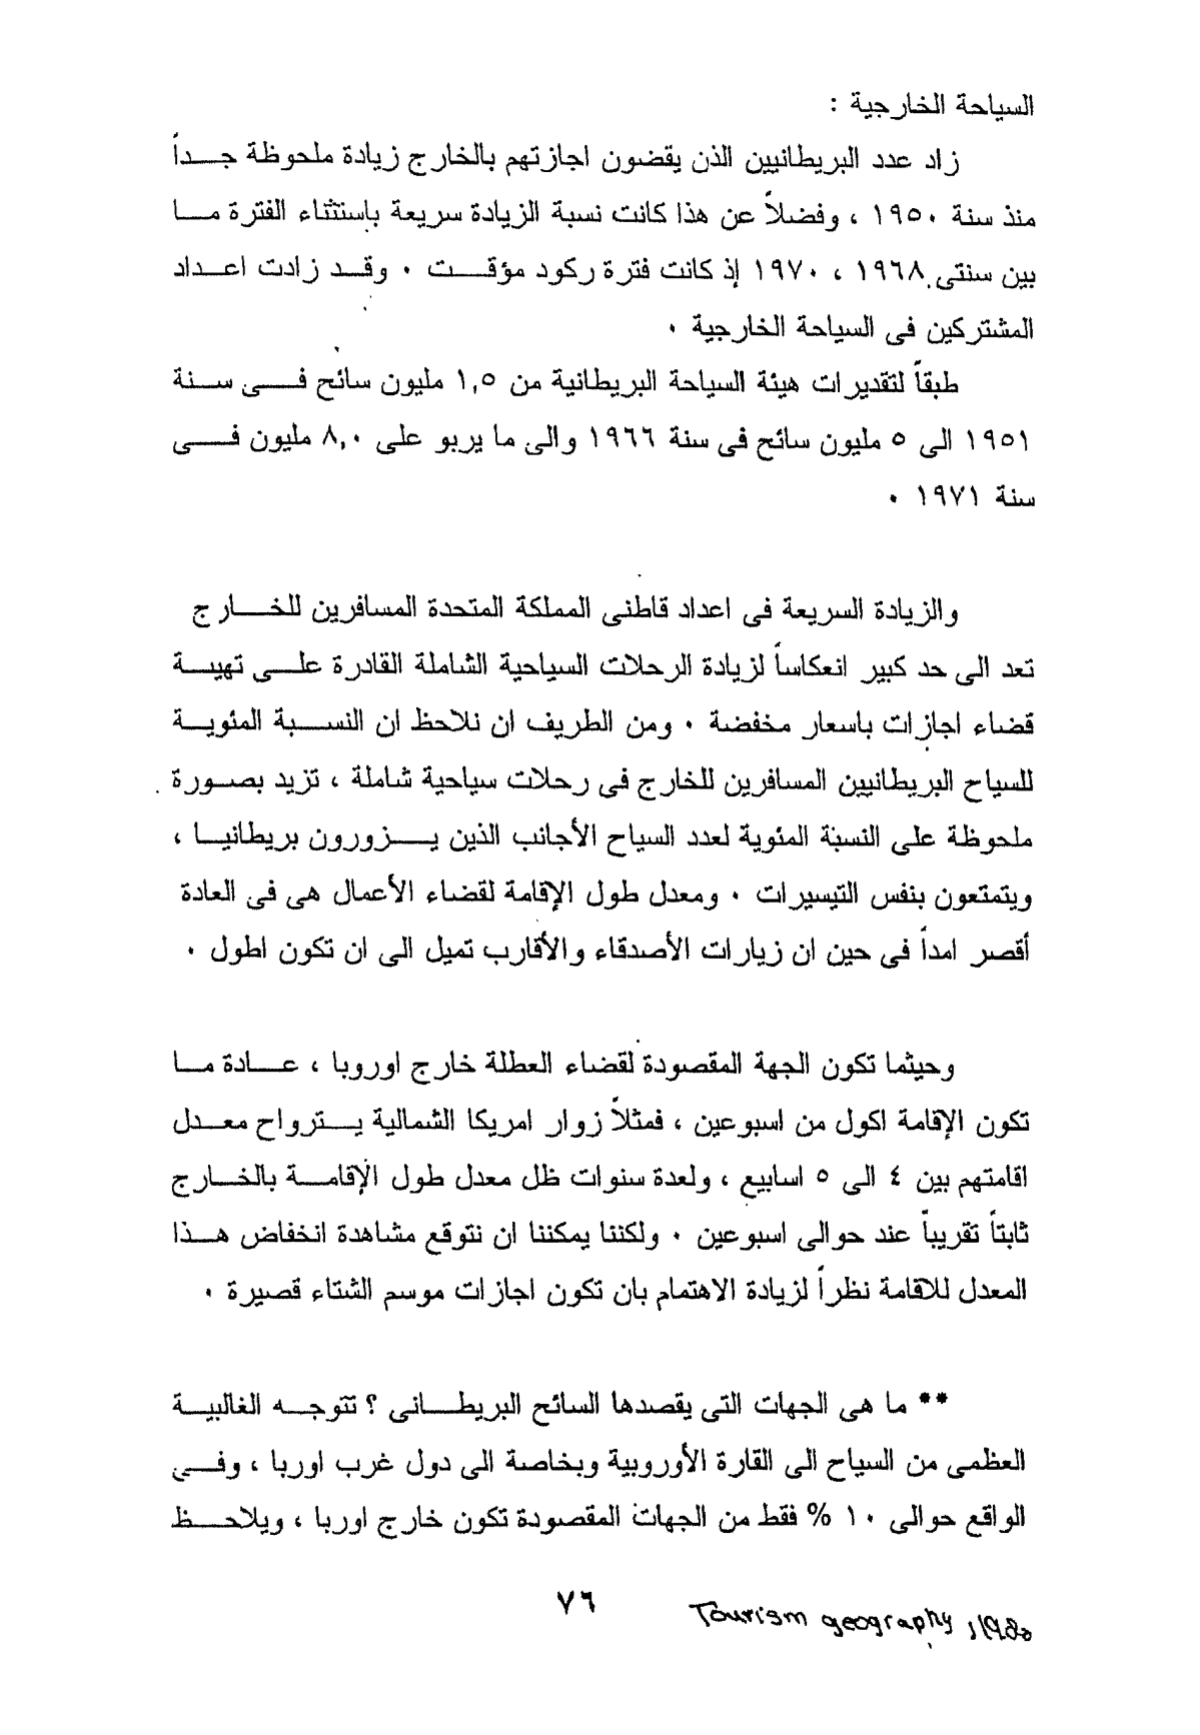 السياحة الخارجية :
زاد عدد البريطانيين الذن يقضون اجازتهم بالخارج زيادة ملحوظة جداً
منذ سنة ١٩٥٠ ، وفضلاً عن هذا كانت نسبة الزيادة سريعة باستثناء الفترة ما
بين سنتى ١٩٦٨ ، ١٩٧٠ إذ كانت فترة ركود مؤقت ٠ وقد زادت اعداد
المشتركين فى السياحة الخارجية ٠
طبقاً لتقديرات هيئة السياحة البريطانية من ١,٥ مليون سائح فى سنة
١٩٥١ الى ٥ مليون سائح فى سنة ١٩٦٦ والى ما يربو على ٨,٠ مليون فى
سنة ١٩٧١ ٠
والزيادة السريعة فى اعداد قاطنى المملكة المتحدة المسافرين للخارج
تعد الى حد كبير انعكاساً لزيادة الرحلات السياحية الشاملة القادرة على تهيية
قضاء اجازات باسعار مخفضة ٠ ومن الطريف ان نلاحظ ان النسبة المئوية
للسياح البريطانيين المسافرين للخارج فى رحلات سياحية شاملة ، تزيد بصورة
ملحوظة على النسبة المئوية لعدد السياح الأجانب الذين يزورون بريطانيا ،
ويتمتعون بنفس التيسيرات ٠ ومعدل طول الإقامة لقضاء الأعمال هى فى العادة
أقصر امداً فى حين ان زيارات الأصدقاء والأقارب تميل الى ان تكون اطول ٠
وحيثما تكون الجهة المقصودة لقضاء العطلة خارج اوروبا ، عادة ما
تكون الإقامة اكول من اسبوعين ، فمثلاً زوار امريكا الشمالية يترواح معدل
اقامتهم بين ٤ الى ٥ اسابيع ، ولعدة سنوات ظل معدل طول الإقامة بالخارج
ثابتاً تقريباً عند حوالى اسبوعين ٠ ولكننا يمكننا ان نتوقع مشاهدة انخفاض هذا
المعدل للاقامة نظراً لزيادة الاهتمام بان تكون اجازات موسم الشتاء قصيرة ٠
** ما هى الجهات التى يقصدها السائح البريطانى ؟ تتوجه الغالبية
العظمى من السياح الى القارة الأوروبية وبخاصة الى دول غرب اوربا ، وفى
الواقع حوالى ١٠ % فقط من الجهات المقصودة تكون خارج اوربا ، ويلاحظ
٧٦
Tourism geography